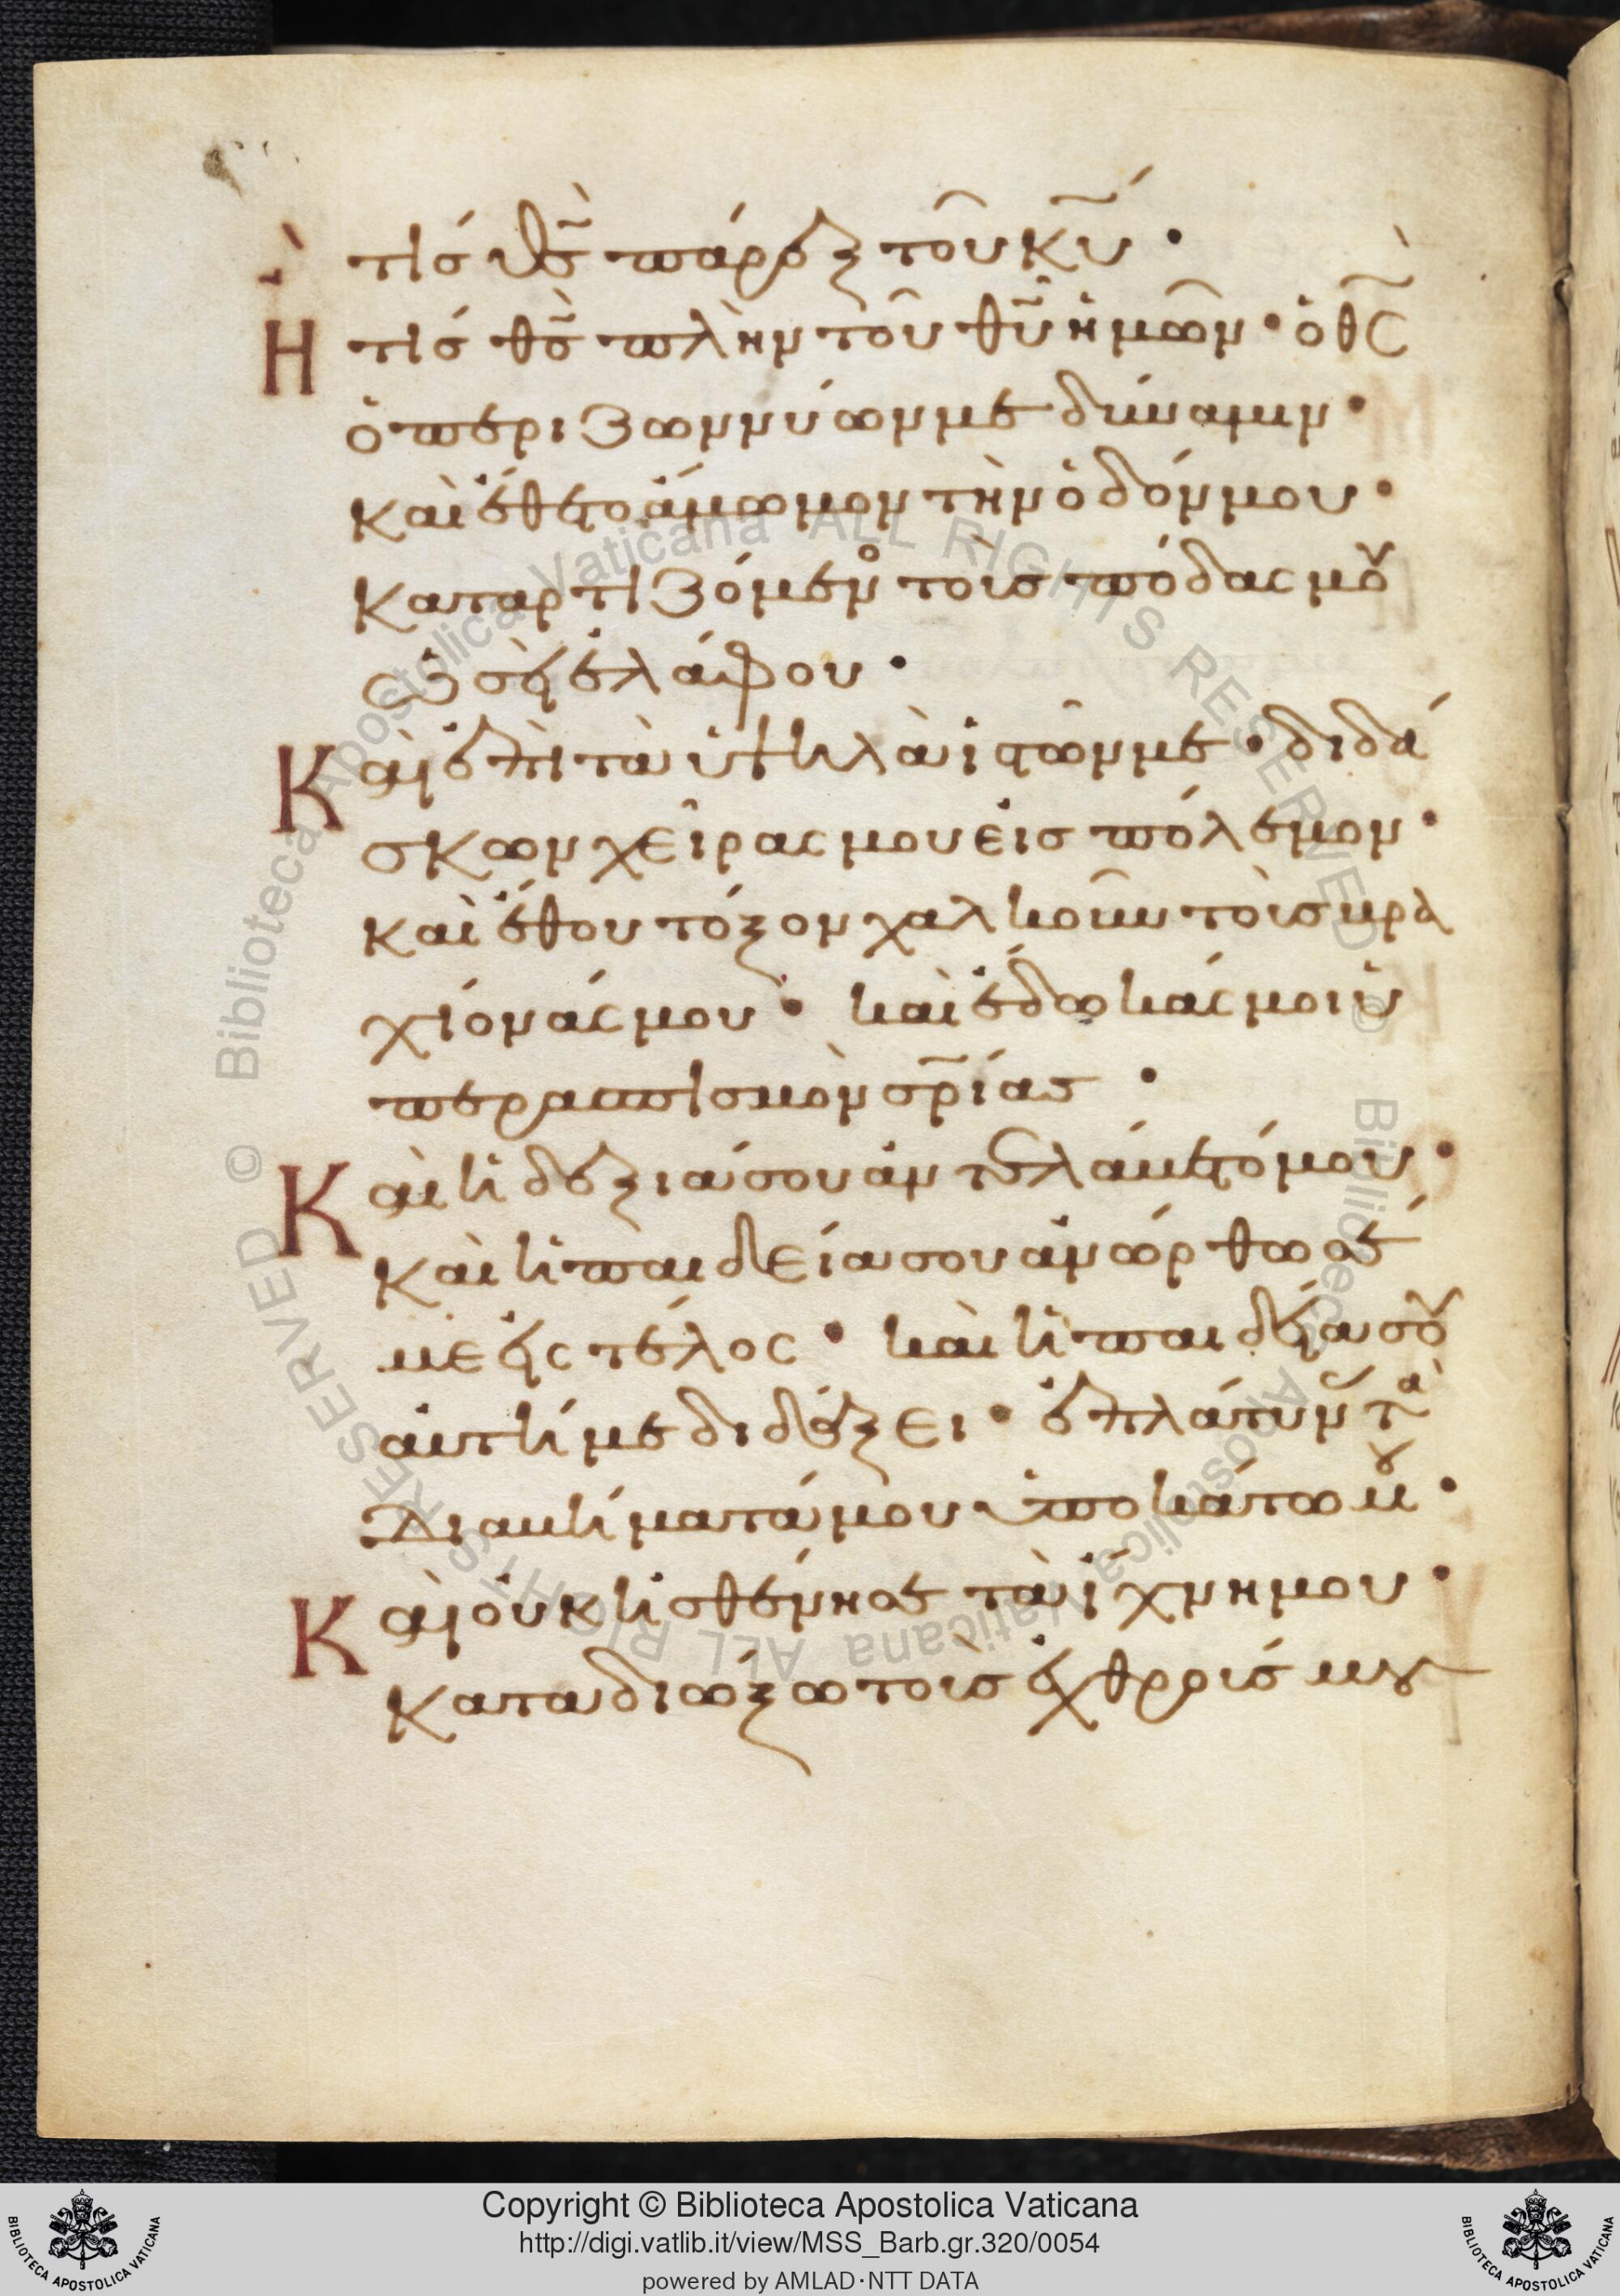 τίς θ̅ς̀ πάρεξ τοῦ κ̅ύ ·
Η τίς θ̅ς̀ πλὴν τοῦ θ̅υ̂ ἡμῶν · ὁ θ̅ς̀
ὁ περιζωννύων με δύναμιν ·
καὶ ἔθετο ἄμωμον τὴν ὁδόν μου ·
Καταρτιζόμενο τοὺς πόδας μου
ὡσεὶ ἐλάφου ·
Καὶ ἐπὶ τὰ ὑψηλὰ ἱστῶν με · διδά
σκων χεῖρας μου εἰς πόλεμον ·
καὶ ἔθου τόξον χαλκοῦν τοὺς βρα
χίονάς μου · καὶ ἔδωκάς μοι ὑ
περασπισμὸν σ̅ρ̅ίας ·
Καὶ ἡ δεξιά σου ἀντελάβετό μου ·
καὶ ἡ παιδεία σου ἀνώρθωσέ
με εἰς τέλος · καὶ ἡ παιδεία σου
αὐτή με διδάξει · ἐπλάτυνας τὰ
διαβήματά μου ὑποκάτω μου ·
Καὶ οὐκ ἠσθένησε τὰ ἴχνη μου ·
καταδιώξω τοὺς ἐχθρούς μου
Copyright © Biblioteca Apostolica Vaticana
http://digi.vatlib.it/view/MSS_Barb.gr.320/0054
powered by AMLAD·NTT DATA